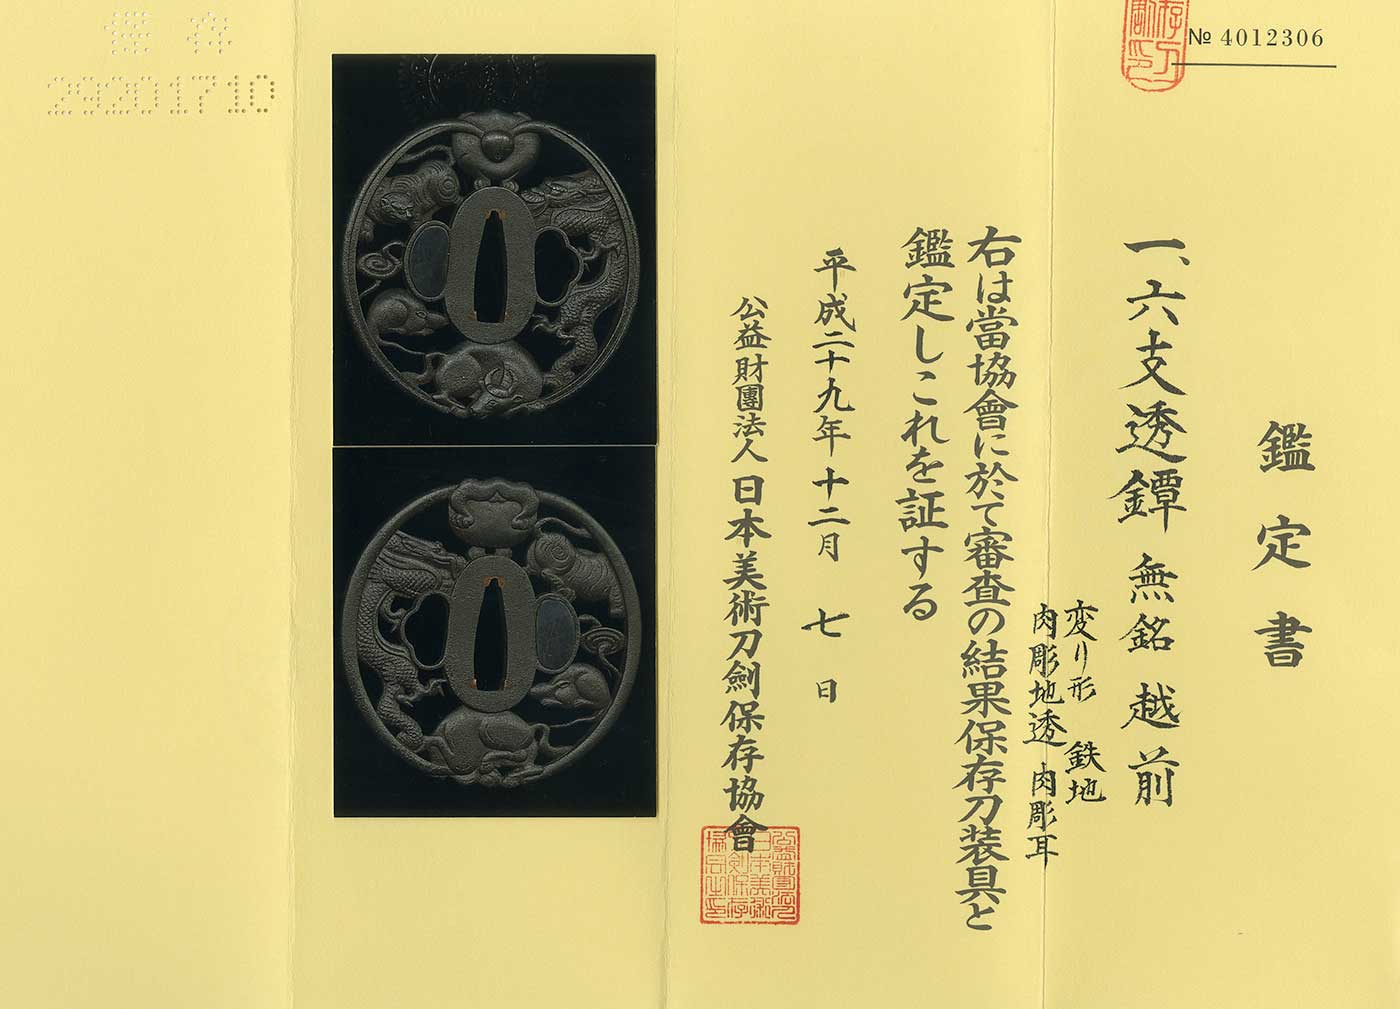 № 4012306
鑑定書
一、六支透鐔 無銘 越前
変り形 鉄地
肉彫地透 肉彫耳
右は當協會に於て審査の結果保存刀装具と
鑑定しこれを証する
平成二十九年十二月 七 日
公益財團法人 日本美術刀劍保存協會
保存
29201710